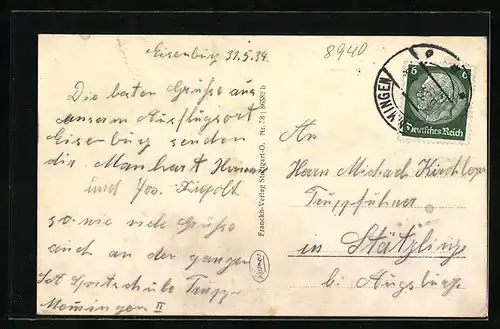 Eisenburg 31.5.34.
8940
Die besten Grüsse aus
unserm Ausflugsort
Eisenburg senden
dir Manhart
und Jos.
so wie viele Grüsse
auch an der ganzen
SA Sportschule Truppe
Memmingen II
Franckh-Verlag Stuttgart-O. Nr. 78
6 6
Deutsches Reich
MINGEN
An
Herrn Michael
Truppführer
in Stätzling
b/ Augsburg